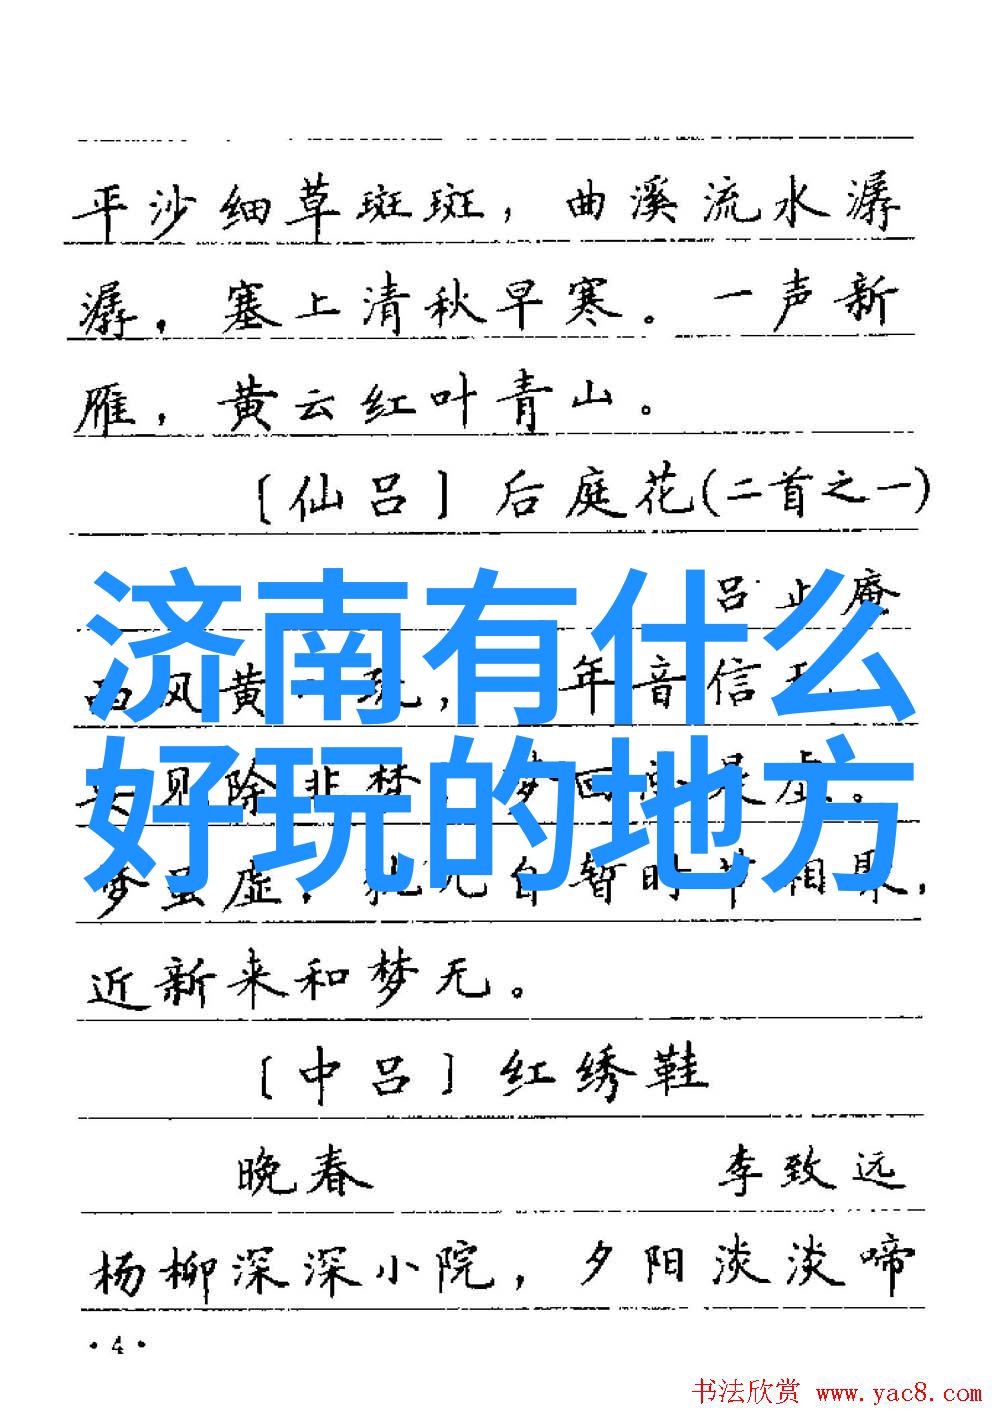 平沙细草斑斑，曲溪流水潺
潺，塞上清秋早寒。一声新
雁，黄云红叶青山。
〔仙吕〕后庭花(二首之一)
吕止庵
济南有什么
风黄 年音信
好玩的地方
见除非梦 梦回 是虚。
梦虽虚， 暂时节相聚，
近新来和梦无。
〔中吕〕红绣鞋
晚春 李致远
杨柳深深小院，夕阳淡淡啼
·4·
书法欣赏 www.yac8.com